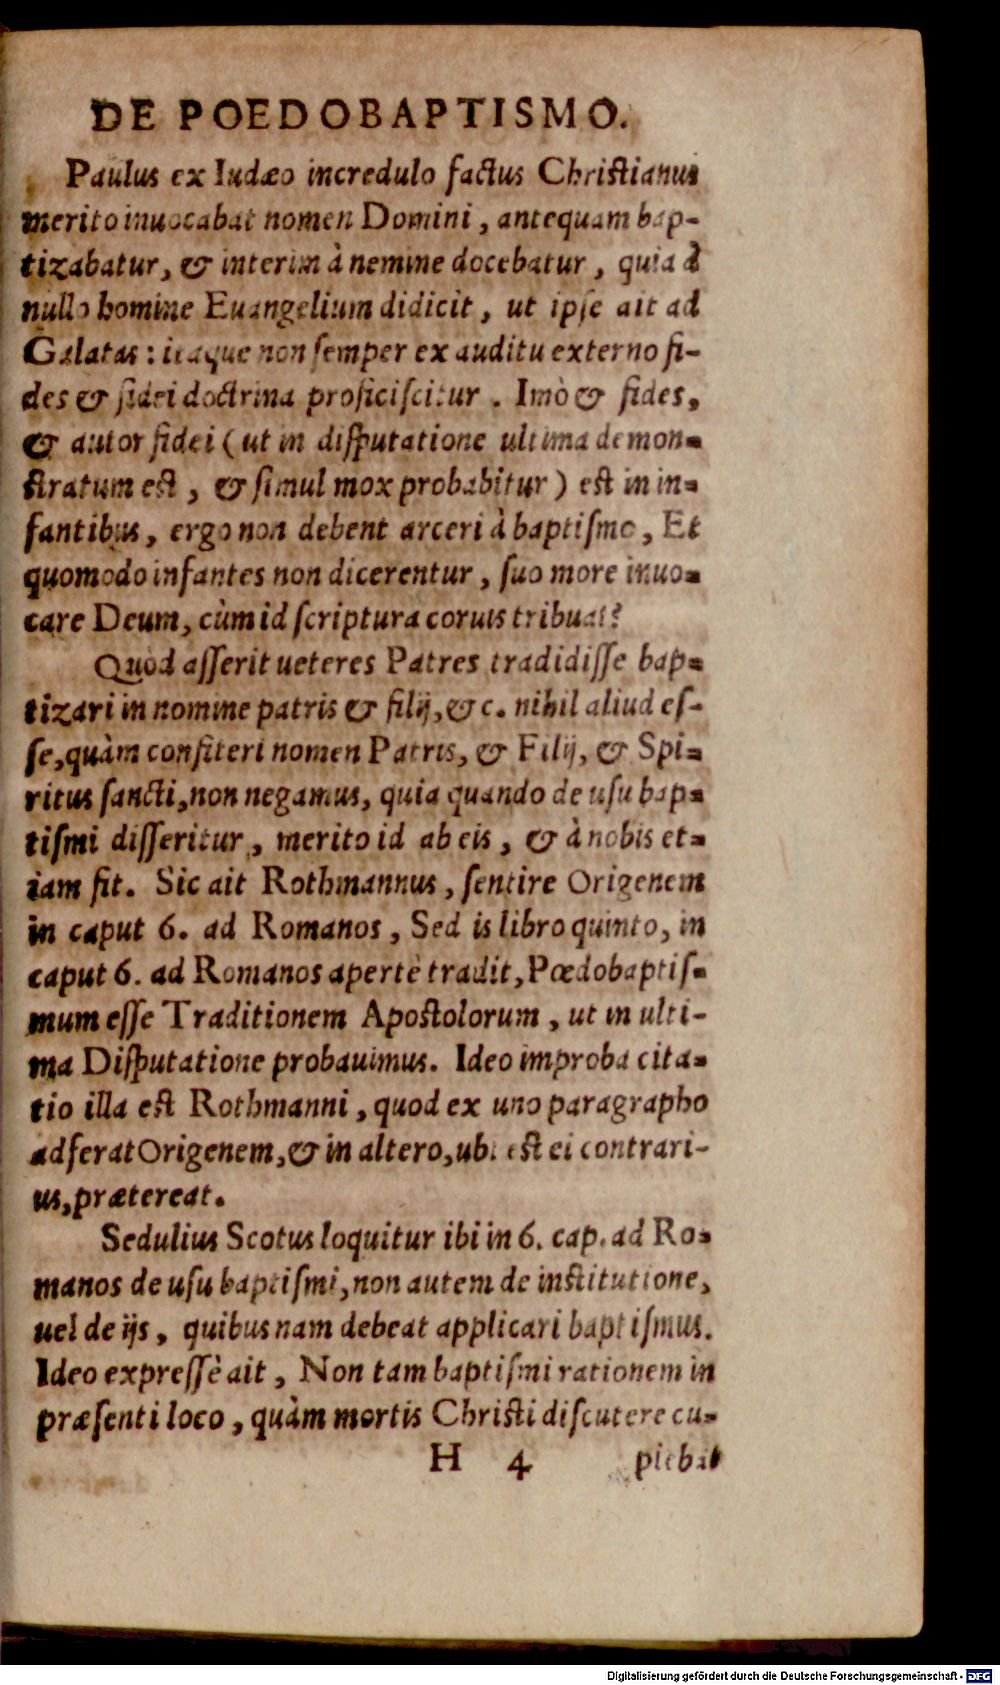 DE POEDOBAPTISMO.
Paulus ex Iudæo incredulo factus Christianus
merito inuocabat nomen Domini, antequam bap-
tizabatur, & interim à nemine docebatur, quia à
nullo homine Euangelium didicit, ut ipſe ait ad
Galatas: itaque non ſemper ex auditu externo fi-
des & fidei doctrina proficiſcitur. Imò & fides,
& autor fidei (ut in diſputatione ultima demon-
stratum est, & ſimul mox probabitur) est in in-
fantibus, ergo non debent arceri à baptiſmo, Et
quomodo infantes non dicerentur, ſuo more inuo-
care Deum, cùm id ſcriptura coruis tribuat?
Quod aſſerit ueteres Patres tradidiſſe bap-
tizari in nomine patris & filij, &c. nihil aliud eſ-
ſe, quàm confiteri nomen Patris, & Filij, & Spi-
ritus ſancti, non negamus, quia quando de uſu bap-
tiſmi diſſeritur, merito id ab eis, & à nobis et-
iam fit. Sic ait Rothmannus, ſentire Origenem
in caput 6. ad Romanos, Sed is libro quinto, in
caput 6. ad Romanos apertè tradit, Pœdobaptiſ-
mum eſſe Traditionem Apostolorum, ut in ulti-
ma Diſputatione probauimus. Ideo improba cita-
tio illa est Rothmanni, quod ex uno paragrapho
adferat Origenem, & in altero, ubi est ei contrari-
us, prætereat.
Sedulius Scotus loquitur ibi in 6. cap. ad Ro-
manos de uſu baptiſmi, non autem de institutione,
uel de ijs, quibus nam debeat applicari baptiſmus.
Ideo expreſſè ait, Non tam baptiſmi rationem in
præſenti loco, quàm mortis Christi diſcutere cu-
H 4 piebat
Digitalisierung gefördert durch die Deutsche Forschungsgemeinschaft - DFG